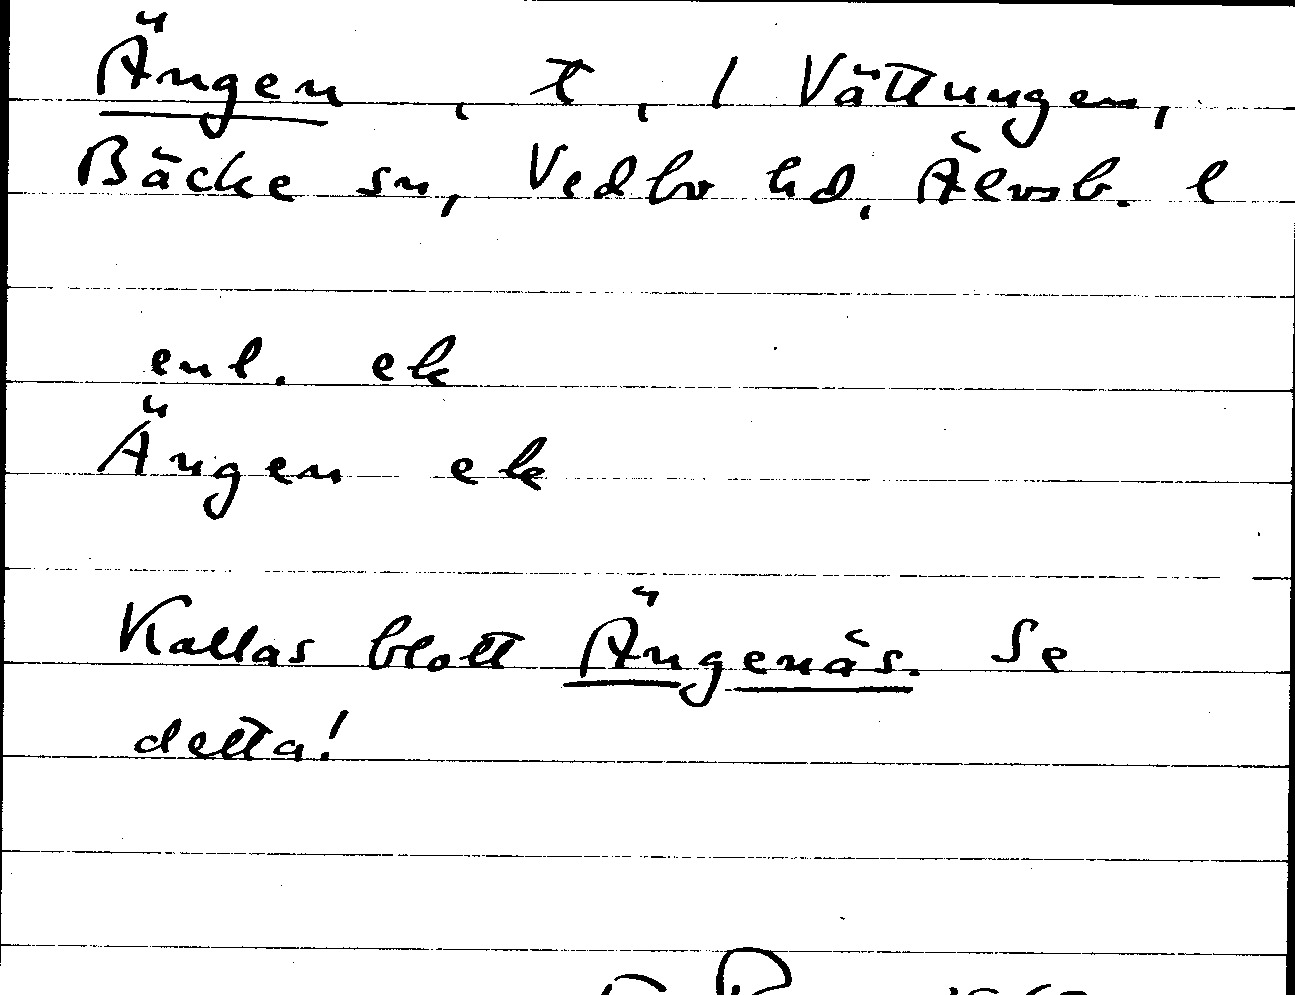 Ängen, t, 1 Vättungen,
Bäcke sn, Vedbo hd, Älvsb. l
enl. ek
Ängen ek
Kallas blott Ängenäs. Se
detta!